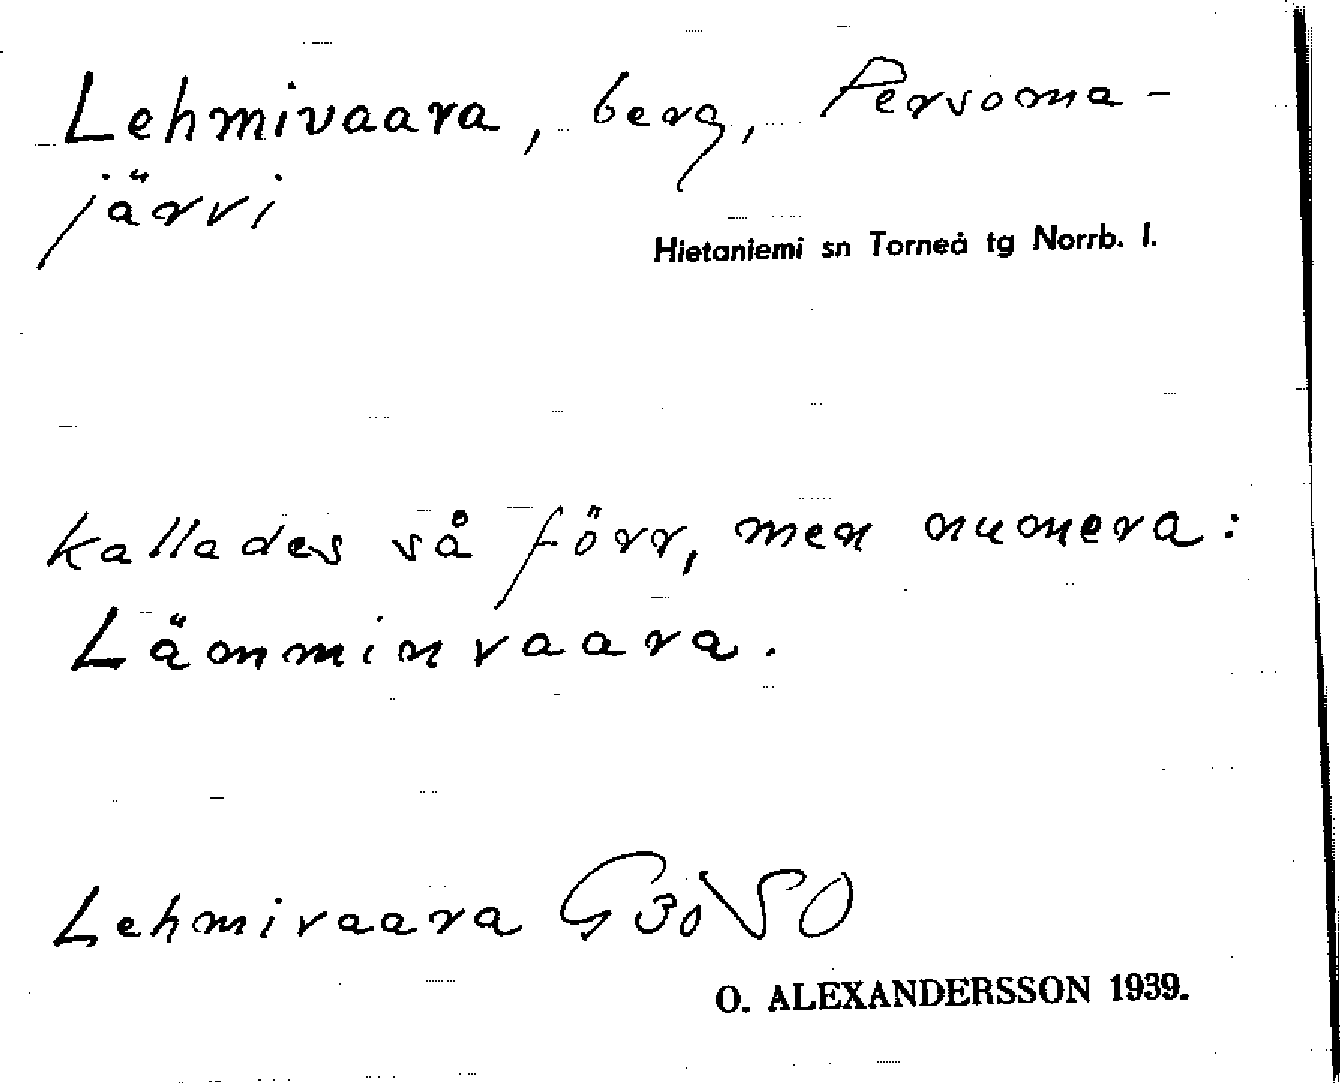 Lehmivaara, berg, Persoma-
järvi
Hietaniemi sn Torneå tg Norrb. l.
kallades så förr, men numera:
Lämminvaara.
Lehmivaara G 30 VSO
O. ALEXANDERSSON 1939.